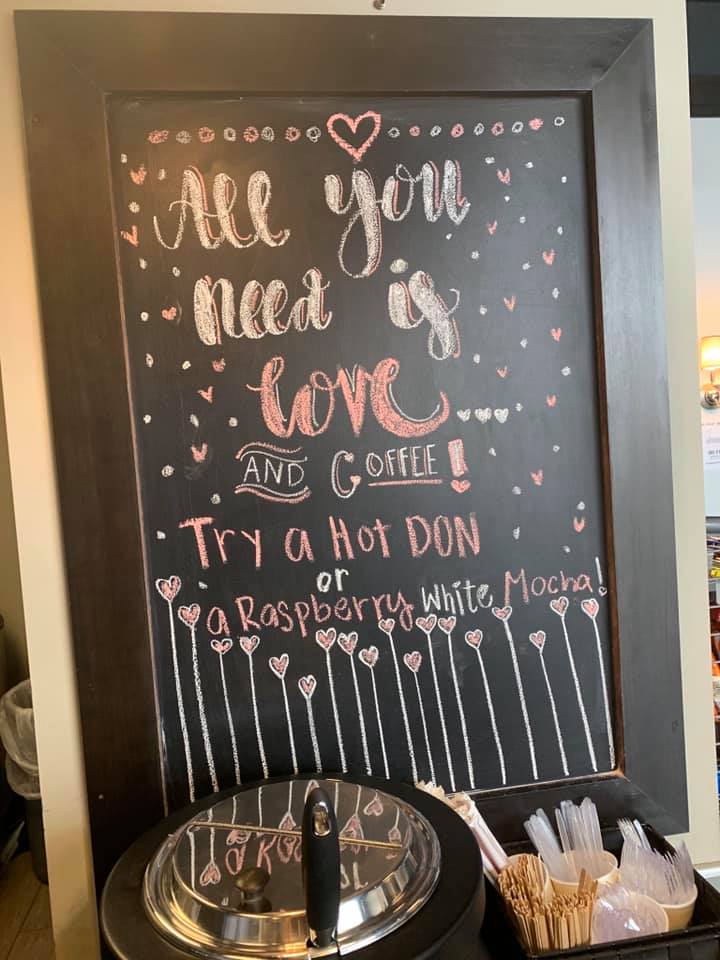 All you
need is
love...
AND COFFEE!
Try a Hot DON
or
a Raspberry White Mocha!